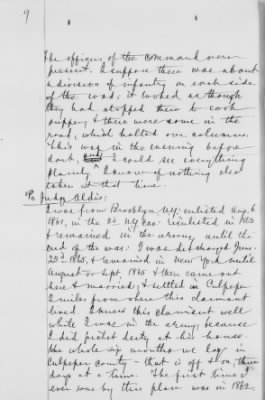 9
The officers of the command were
present. I suppose there was about
a division of infantry on each side
of the road, it looked as though
they had stopped there to cook
supper, & there were some in the
road, which halted our columns.
This was in the evening before
dark, I could see everything
plainly. I know of nothing else
taken at that time.
By Judge Aldis:
I was from Brooklyn N.Y; enlisted Aug. 6
1861, in the 2d N.Y. Cav. reinlisted in 1863
& remained in the army until the
end of the war: I was discharged June
23d 1865, & remained in New York until
August or Sept. 1865 & then came out
here & married, & settled in Culpeper
2 miles from where this claimant
lived. I knew this claimant well
while I was in the army, because
I did picket duty at his house
the whole six months we lay in
Culpeper county - that is off & on, three
days at a time. The first time I
ever was by this place was in 1862.